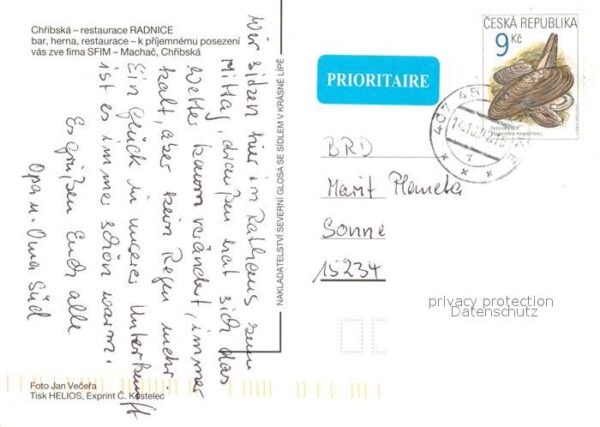 Chřibská – restaurace RADNICE
bar, herna, restaurace – k příjemnému posezení
vás zve fima SFIM – Machač, Chřibská
Wir sitzen hier im Rathaus zum
Mittag, draußen hat sich das
Wetter kaum verändert, immer
kalt, aber kein Regen mehr.
Ein Glück in unserer Unterkunft
ist es immer schön warm.
Es grüßen Euch alle
Opa u. Oma Süd
Foto Jan Večeřa
Tisk HELIOS, Exprint Č. Kostelec
NAKLADATELSTVÍ SEVERNÍ GLOSA SE SÍDLEM V KRÁSNÉ LÍPĚ
PRIORITAIRE
ČESKÁ REPUBLIKA
9 Kč
407 45
BRD
Marit
Sonne
15234
privacy protection
Datenschutz